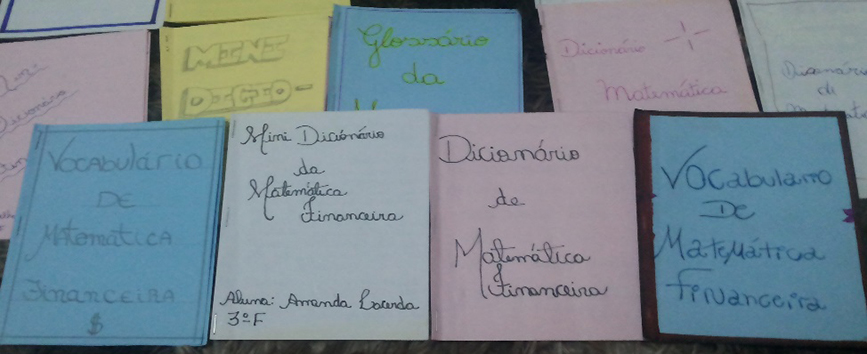 MINI
Glossário
da
Dicionário
Matemática
VOCABULÁRIO
DE
MATEMÁTICA
FINANCEIRA
$
Mini Dicionário
da
Matemática
Financeira
Aluna: Amanda
3º F
Dicionário
de
Matemática
Financeira
VOCabulario
De
Matemática
Financeira